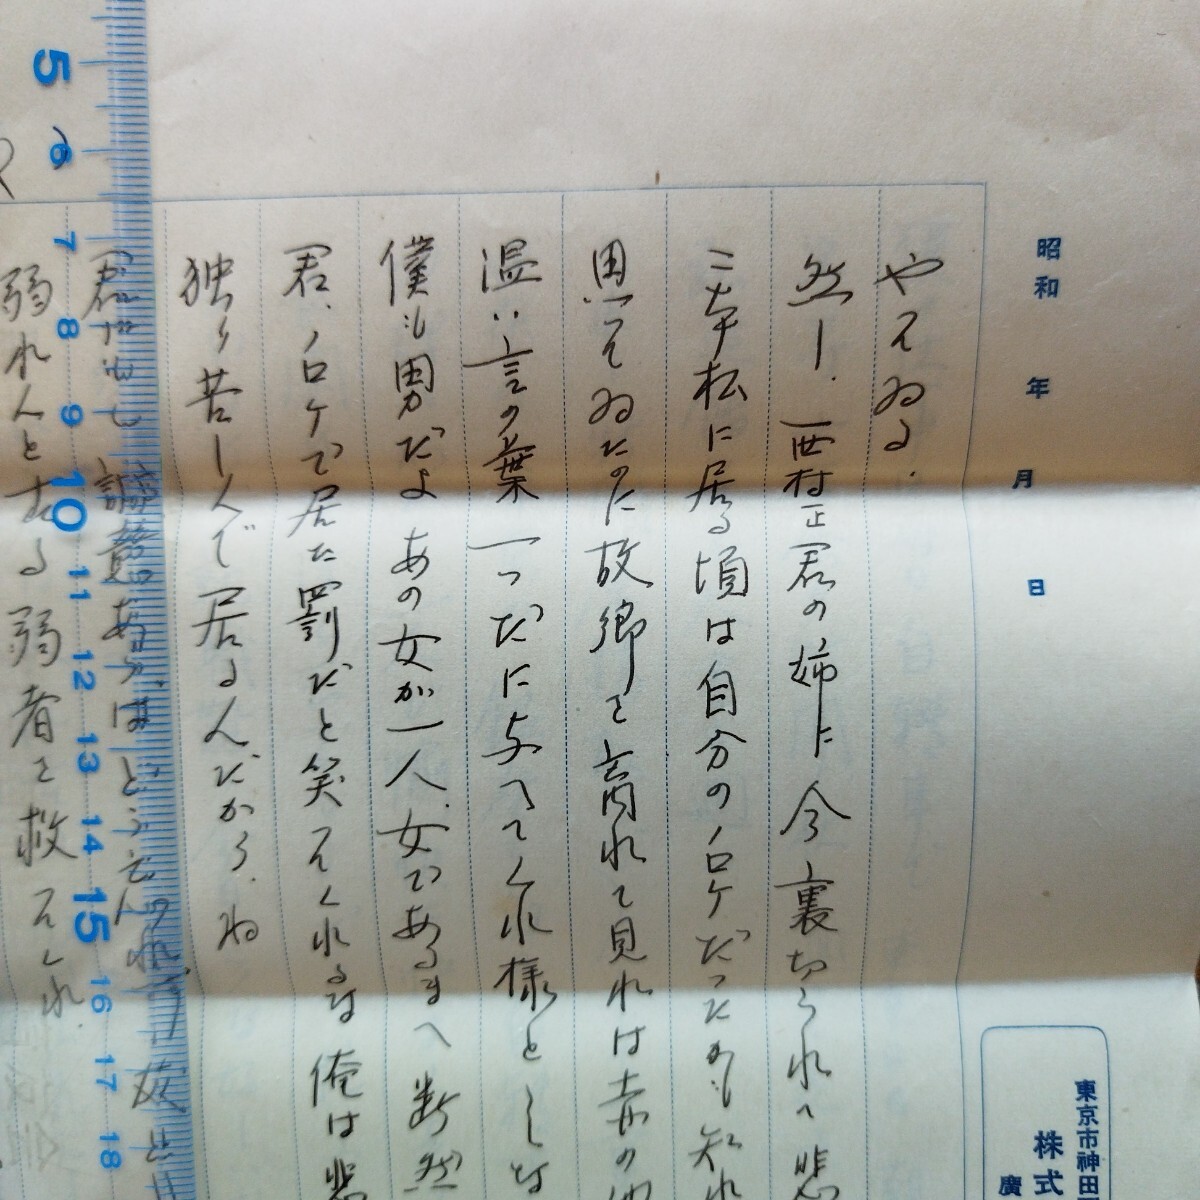 昭和　年　月　日
東京市神田
株式
廣
やてゐる．
然し．西村正君の姉に今裏切られ、悲
二本松に居る頃は自分のノロケだったかも知れ
思ってゐたのに故郷を離れて見れば赤の他
温い言の葉一つだに与へてくれ様としな
僕も男だよ あの女が一人、女であるまへ断然
君、ノロケで居た罰だと笑ってくれるな 俺は悲
独り苦しんで居るんだから．ね
君
弱れんとする弱者を救ってくれ
5
6
7
8
9
10
11
12
13
14
15
16
17
18